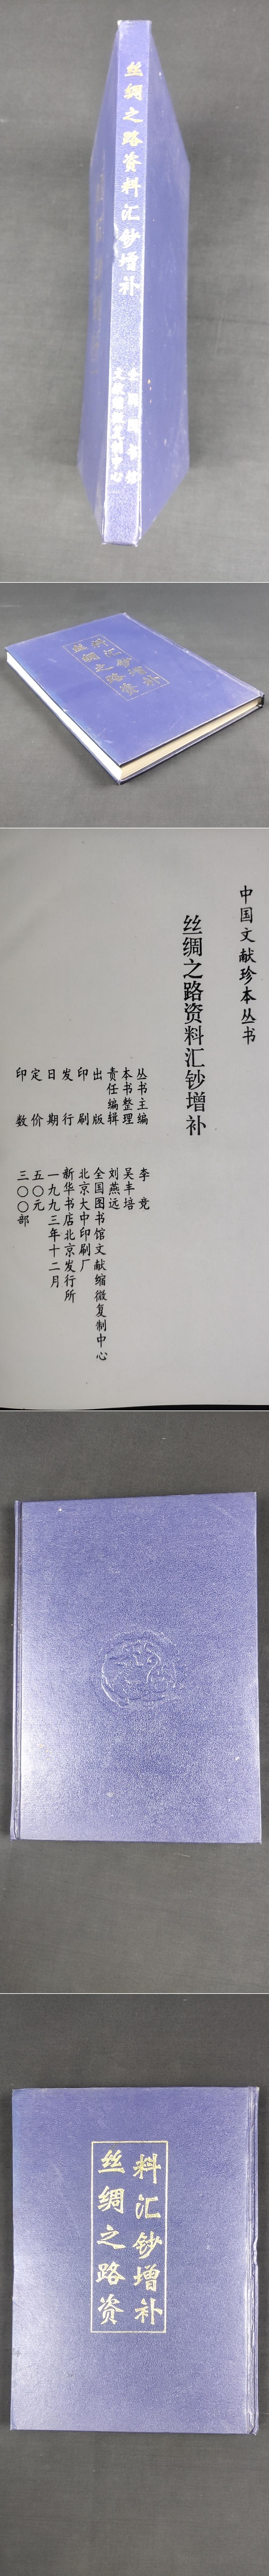 丝绸之路资料汇钞增补
全国图书馆
文献缩微复制中心
丝绸之路资
料汇钞增补
中国文献珍本丛书
丝绸之路资料汇钞增补
丛书主编 李竞
本书整理 吴丰培
责任编辑 刘燕远
出版 全国图书馆文献缩微复制中心
印刷 北京大中印刷厂
发行 新华书店北京发行所
日期 一九九三年十二月
定价 五〇元
印数 三〇〇部
丝绸之路资
料汇钞增补